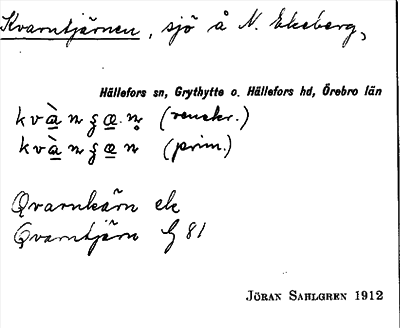 Kvarntjärnen, sjö å N. Ekeberg,
Hällefors sn, Grythytte o. Hällefors hd, Örebro län
kvànʒæ.n̥ (renskr.)
kvànʒæn (prim.)
Qvarnkärn ek
Qvarntjärn G 81
JÖRAN SAHLGREN 1912